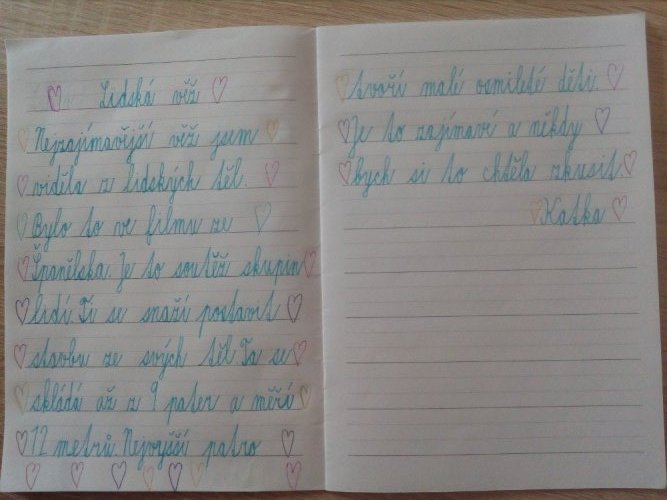 Lidská věž
Nejzajímavější věž jsem
viděla z lidských těl.
Bylo to ve filmu ze
Španělska. Je to soutěž skupin
lidí. Ti se snaží postavit
stavbu ze svých těl. Ta se
skládá až z 9 pater a měří
12 metrů. Nejvyšší patro
tvoří malé osmileté děti.
Je to zajímavé a někdy
bych si to chtěla zkusit.
Katka